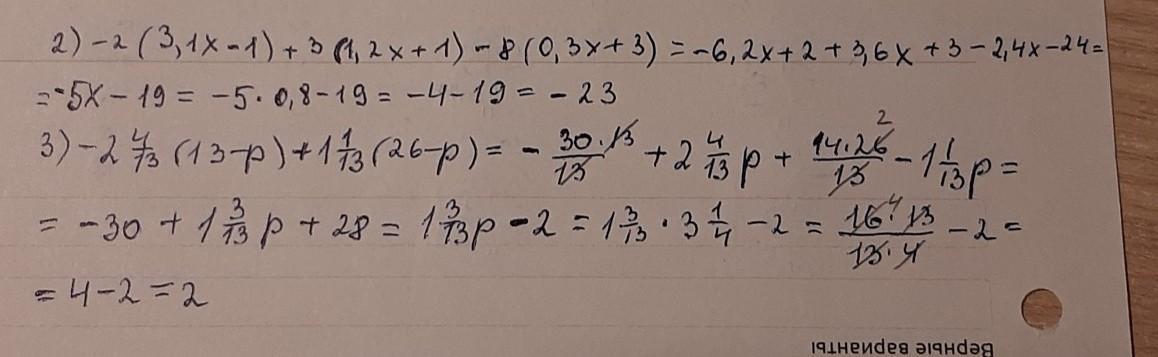 2) -2 (3,1x - 1) + 3 (1,2x + 1) - 8 (0,3x + 3) = -6,2x + 2 + 3,6x + 3 - 2,4x - 24 =
= -5x - 19 = -5 · 0,8 - 19 = -4 - 19 = -23
3) -2 4/13 (13 - p) + 1 1/13 (26 - p) = - (30 · 13)/13 + 2 4/13 p + (14 · 26 2)/13 - 1 1/13 p =
= -30 + 1 3/13 p + 28 = 1 3/13 p - 2 = 1 3/13 · 3 1/4 - 2 = (16 4 · 13)/(13 · 4) - 2 =
= 4 - 2 = 2
Верные варианты